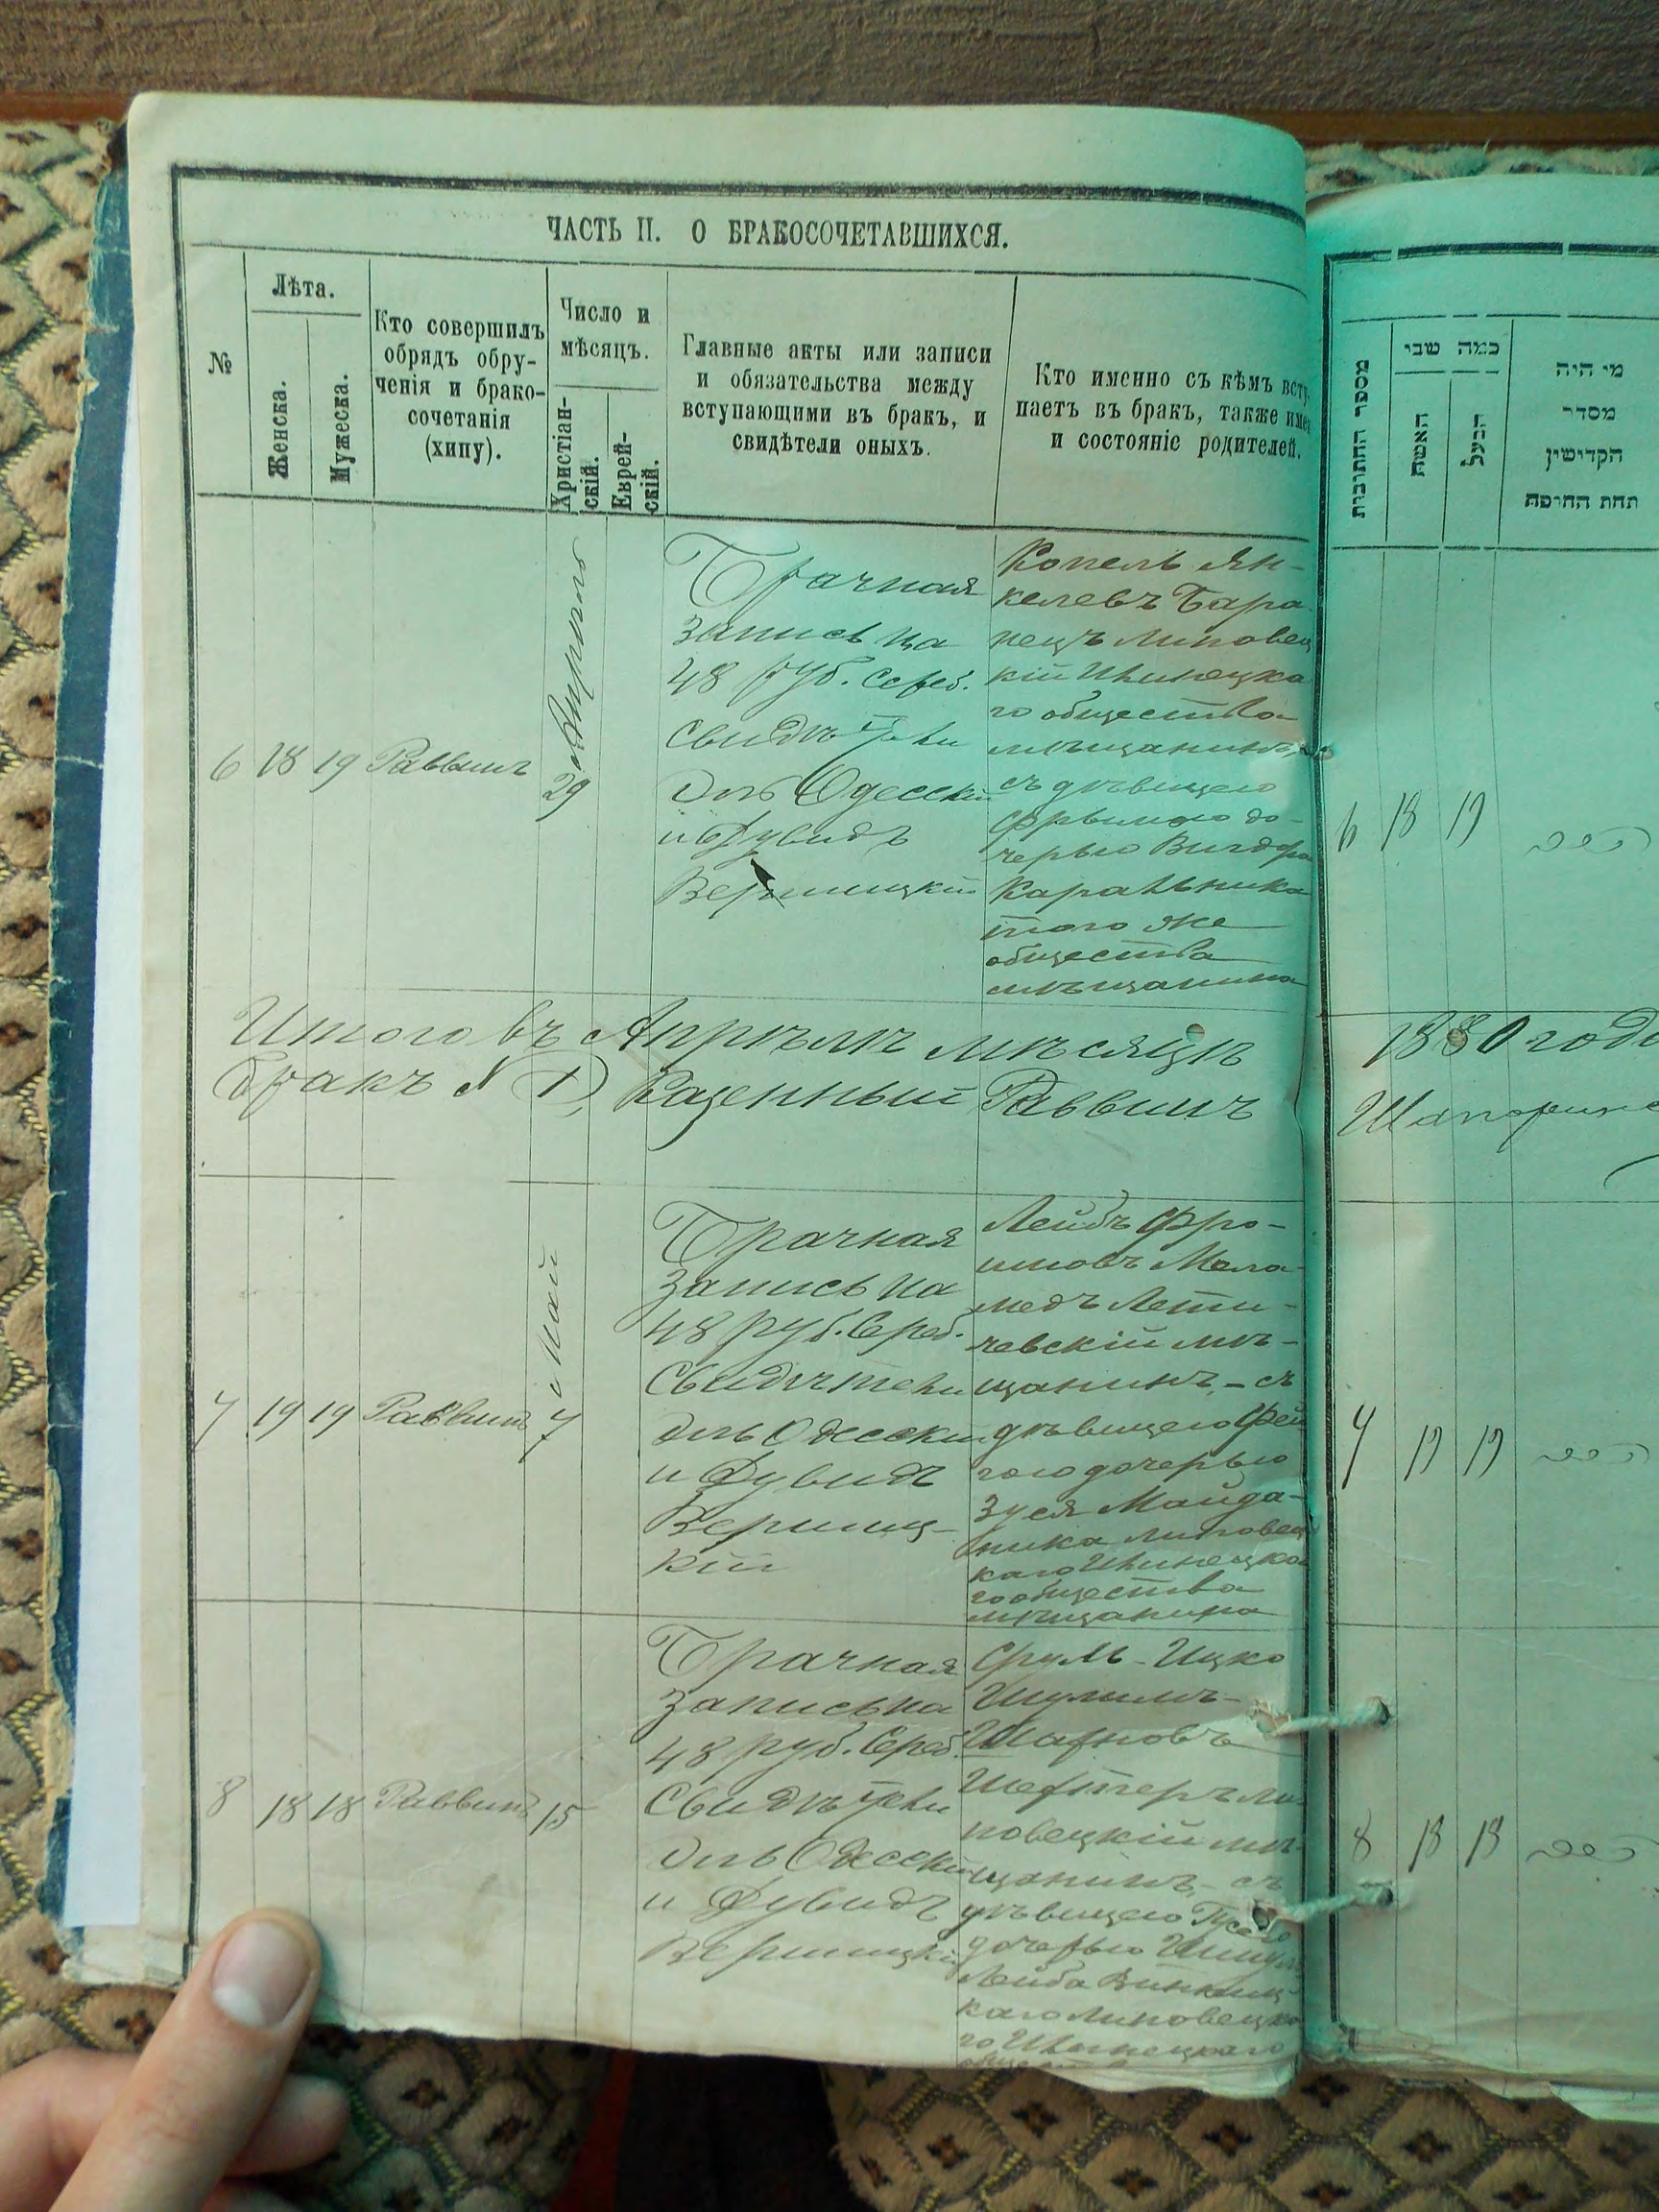 ЧАСТЬ II. О БРАКОСОЧЕТАВШИХСЯ.
№
Лѣта.
Женска.
Мужеска.
Кто совершилъ
обрядъ обру-
ченія и брако-
сочетанія
(хипу).
Число и
мѣсяцъ.
Христіан-
скій.
Еврей-
скій.
Главные акты или записи
и обязательства между
вступающими въ бракъ, и
свидѣтели оныхъ.
Кто именно съ кѣмъ всту
паетъ въ бракъ, также имен
и состояніе родителей.
6
18
19
Раввинъ
29 Апрѣль
Брачная
запись на
48 руб. сереб.
свидѣтели
Одесскій
и Дувидъ
Вершицкій
Копель Ян-
келевъ Бара
нецъ Липовец
кій Ильинецка
го общества
мѣщанинъ,
съ дѣвицею
Фрымою до-
черью
Каральника
того же
общества
мѣщанина
Итого въ Апрѣлѣ мѣсяцѣ
бракъ № 1, Казенный Раввинъ
7
19
19
Раввинъ
7 Май
Брачная
запись на
48 руб. Сереб.
Свидѣтели
Одесскій
и Дувидъ
Вершиц-
кій
Лейбъ Фро-
имовъ Мела-
медъ Лети-
чевскій мѣ-
щанинъ, - съ
дѣвицею Фей
гою дочерью
Зуся Майда-
ника Липовец
каго Ильинецка
го общества
мѣщанина
8
18
18
Раввинъ
15
Брачная
запись на
48 руб. Сереб.
Свидѣтели
Одесскій
и Дувидъ
Вершицкій
Сруль-Ицко
Шулимъ-
Шафновъ
Шефтеръ Ли
повецкій мѣ-
щанинъ, - съ
дѣвицею
дочерью
Лейба
каго Липовецка
го Ильинецкаго
общества
מספר החתונות
כמה שבי
האשה
הבעל
מי היה
מסדר
הקדישין
תחת החופה
6
18
19
1880 года
7
19
19
8
18
18